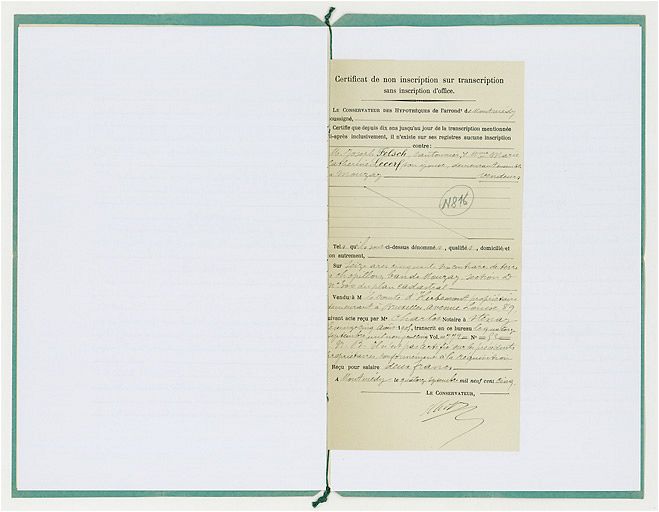 Certificat de non inscription sur transcription
sans inscription d'office.
LE CONSERVATEUR DES HYPOTHÈQUES de l'arrondt de Montmédy
oussigné,
Certifie que depuis dix ans jusqu'au jour de la transcription mentionnée
i-après inclusivement, il n'existe sur ses registres aucune inscription
contre :
M. Joseph Felsch, cantonnier, & Mme Marie
Catherine Lecerf son épouse, demeurant ensemble
à Mouzay vendeurs
N 816
Tels qu'ils sont ci-dessus dénommés, qualifiés, domiciliés et
on autrement,
Sur seize ares cinquante centiares de terre
ban de Mouzay section D
No 300 du plan cadastral
Vendu à M le Comte d'Herbemont propriétaire
demeurant à Bruxelles, avenue Louise 89
uivant acte reçu par Me Charlos Notaire à Stenay
le vingt cinq août 1905, transcrit en ce bureau le quatorze
septembre mil neuf cent Vol. 772 No 82
propriétaires conformément à la réquisition
Reçu pour salaire deux francs
A Montmédy le quatorze septembre mil neuf cent cinq
LE CONSERVATEUR,